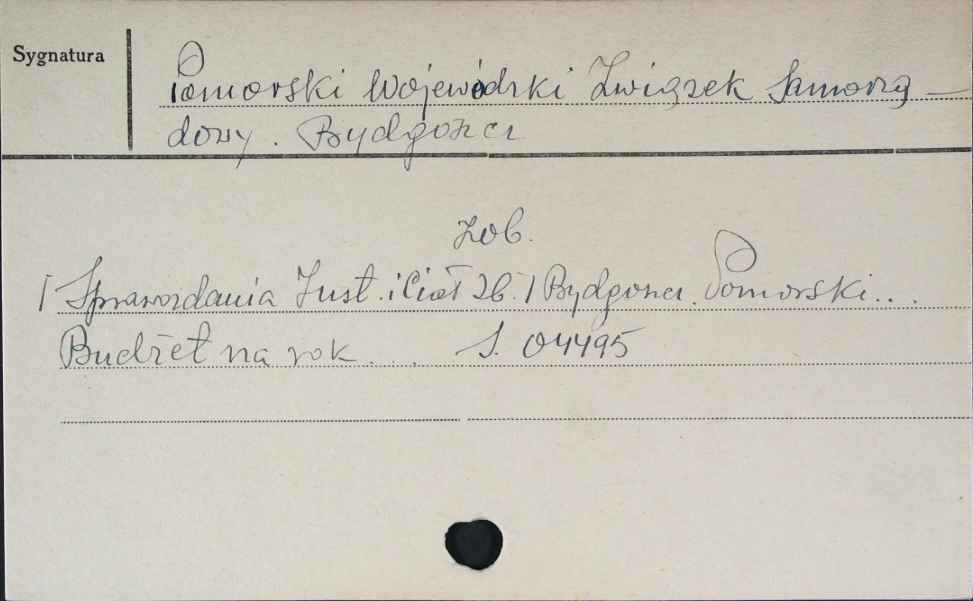 Sygnatura
Pomorski Wojewódzki Związek Samorzą-
dowy. Bydgoszcz
zob.
/Sprawozdania Inst. i Ciał Zb./ Bydgoszcz. Pomorski...
Budżet na rok... S. 04495